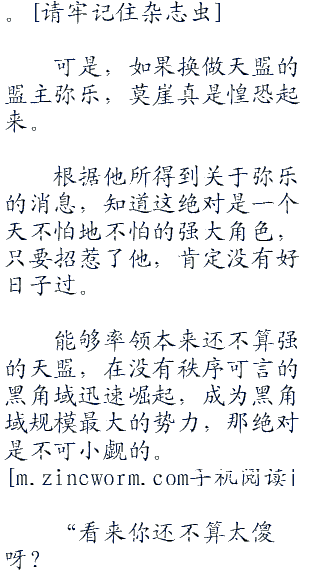 。[请牢记住杂志虫]
可是，如果换做天盟的
盟主弥乐，莫崖真是惶恐起
来。
根据他所得到关于弥乐
的消息，知道这绝对是一个
天不怕地不怕的强大角色，
只要招惹了他，肯定没有好
日子过。
能够率领本来还不算强
的天盟，在没有秩序可言的
黑角域迅速崛起，成为黑角
域规模最大的势力，那绝对
是不可小觑的。
[m.zincworm.com手机阅读i
“看来你还不算太傻
呀？